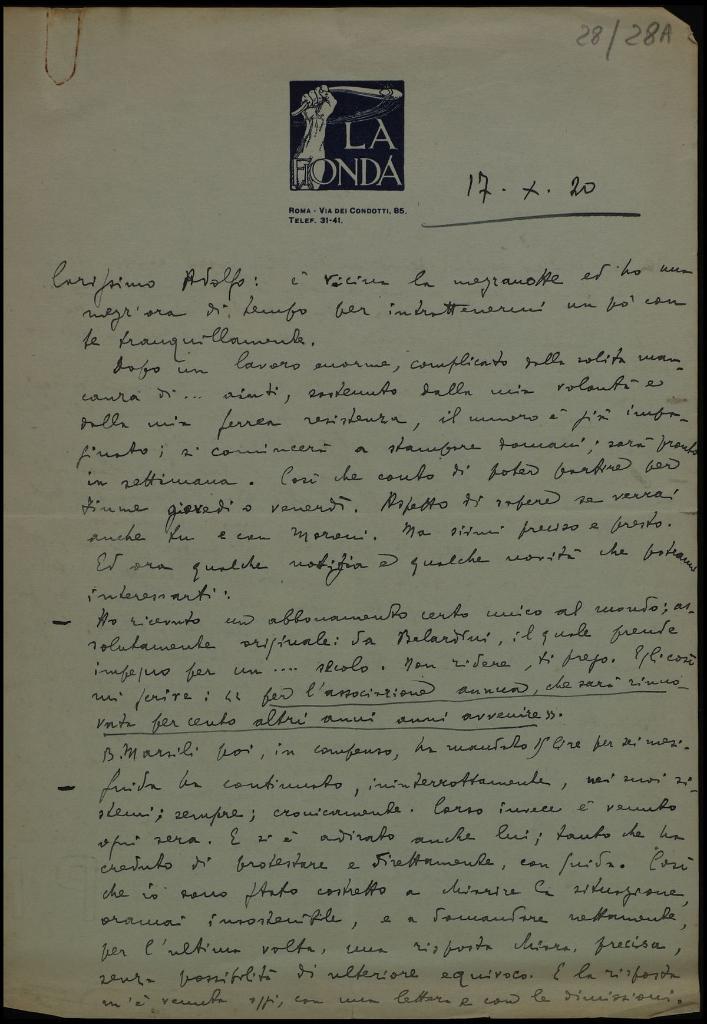 28/28A
LA
FIONDA
ROMA - VIA DEI CONDOTTI, 85.
TELEF. 31-41.
17. X. 20
Carissimo Adolfo: è vicina la mezzanotte ed ho una
mezz'ora di tempo per intrattenermi un pò con
te tranquillamente.
Dopo un lavoro enorme, complicato dalla solita man-
canza di... aiuti, sostenuto dalla mia volontà e
dalla mia ferrea resistenza, il numero è già impa-
ginato; si comincerà a stampare domani; sarà pronto
in settimana. Così che conto di poter partire per
Fiume giovedì o venerdì. Aspetto di sapere se verrai
anche tu e con Marani. Ma siimi preciso e presto.
Ed ora qualche notizia e qualche novità che potranno
interessarti:
— Ho ricevuto un abbonamento certo unico al mondo; as-
solutamente originale: da Belardini, il quale prende
impegno per un .... secolo. Non ridere, ti prego. Egli così
mi scrive: « per l'associazione annua, che sarà rinno-
vata per cento altri anni anni avvenire ».
B. Marsili poi, in compenso, ha mandato 15 lire per sei mesi.
— Guida ha continuato, ininterrottamente, nei suoi si-
stemi; sempre; cronicamente. Corso invece è venuto
ogni sera. E si è adirato anche lui; tanto che ha
creduto di protestare e direttamente, con Guida. Così
che io sono stato costretto a chiarire la situazione,
oramai insostenibile, e a domandare nettamente,
per l'ultima volta, una risposta chiara, precisa,
senza possibilità di ulteriore equivoco. E la risposta
m'è venuta oggi, con una lettera e con le dimissioni.